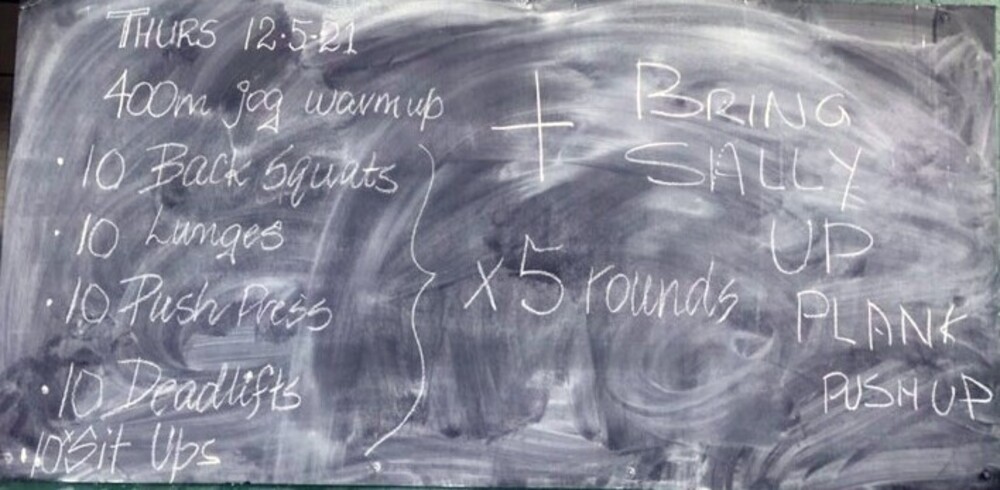 THURS 12.5.21
400m jog warmup
· 10 Back Squats
· 10 Lunges
· 10 Push Press
· 10 Deadlifts
· 10x Sit Ups
x 5 rounds
+ BRING
SALLY
UP
PLANK
PUSH UP